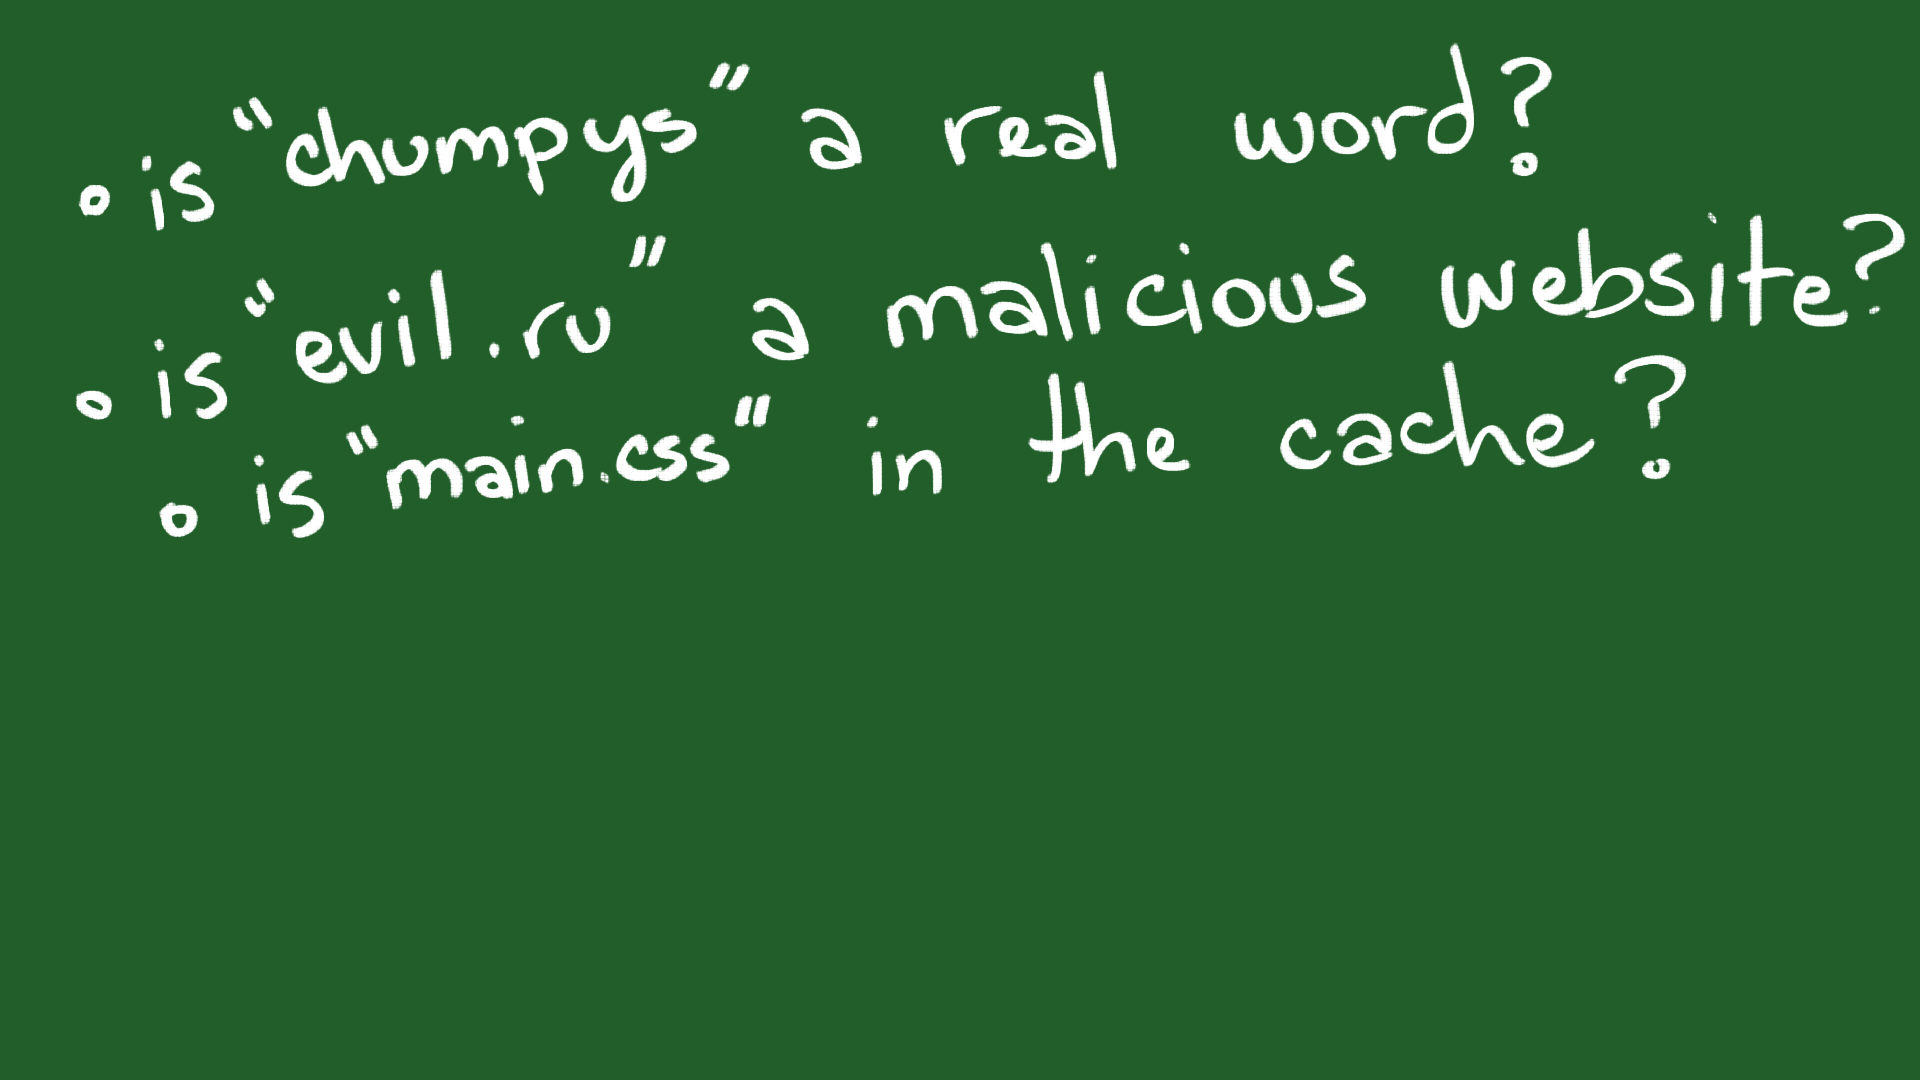 ◦ is "chumpys" a real word?
◦ is "evil.ru" a malicious website?
◦ is "main.css" in the cache?